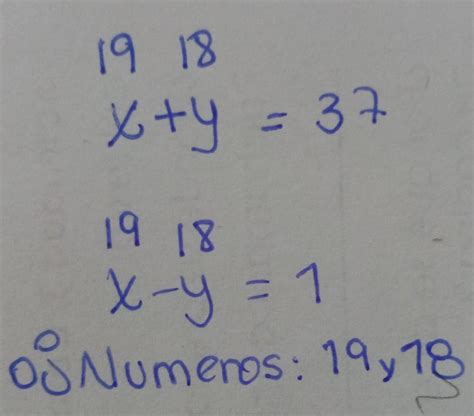 19 18
x+y = 37
19 18
x-y = 1
∴ Numeros: 19 y 18